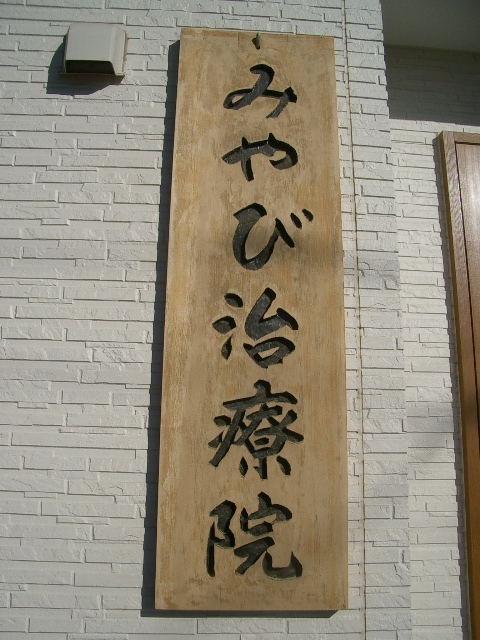 みやび治療院